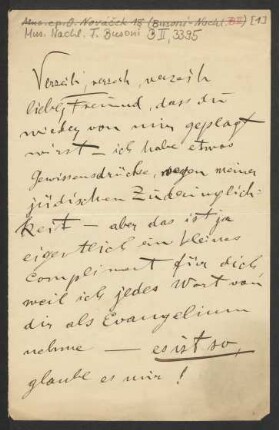 Mus.ep. O. Nováček 19 (Busoni-Nachl. B II) [1]
Mus. Nachl. F. Busoni B II, 3395
Verzeih, verzeih, verzeih
lieber Freund, dass du
wieder von mir geplagt
wirst – ich habe etwas
Gewissensdrücke, wegen meiner
jüdischen Zudringlich-
keit – aber das ist ja
eigentlich ein kleines
Compliment für dich,
weil ich jedes Wort von
dir als Evangelium
nehme — es ist so,
glaube es mir!